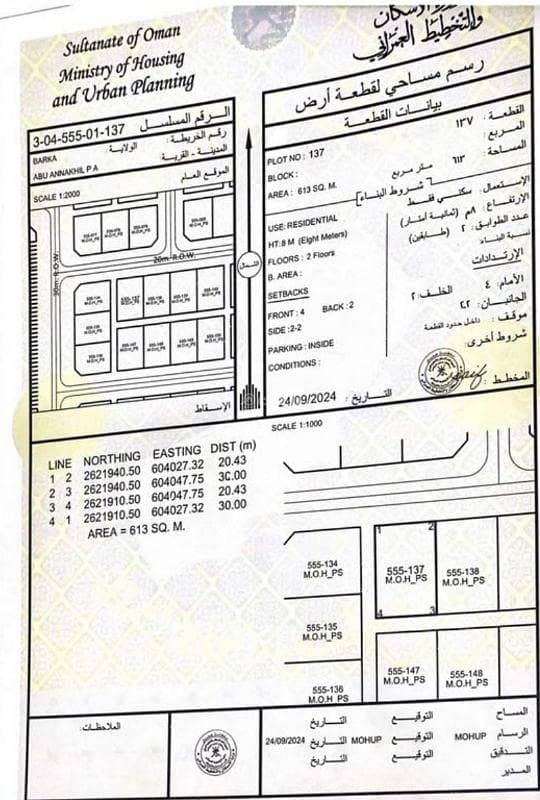 Sultanate of Oman
Ministry of Housing
and Urban Planning
والتخطيط العمراني
الرقم المسلسل
3-04-555-01-137
رقم الخريطة :
الولاية
BARKA
المدينة - القرية
ABU ANNAKHIL P A
الموقع العام
SCALE 1:2000
20m. R.O.W.
الشمال
الإسقاط
رسم مساحي لقطعة أرض
بيانات القطعة
PLOT NO : 137
القطعة : ١٣٧
BLOCK :
المربع :
AREA : 613 SQ. M.
المساحة : ٦١٣ متر مربع
شروط البناء
USE: RESIDENTIAL
الإستعمال: سكني فقط
HT: 8 M (Eight Meters)
الإرتفاع : ٨م (ثمانية أمتار)
FLOORS : 2 Floors
عدد الطوابق : ٢ (طابقين)
B. AREA :
نسبة البناء:
SETBACKS
الإرتدادات
FRONT : 4 BACK : 2
الأمام: ٤ الخلف: ٢
SIDE :2-2
الجانبان : ٢-٢
PARKING : INSIDE
موقف : داخل حدود القطعة
CONDITIONS :
شروط أخرى:
المخطط :
24/09/2024 التاريخ :
SCALE 1:1000
LINE NORTHING EASTING DIST (m)
1 2 2621940.50 604027.32 20.43
2 3 2621940.50 604047.75 30.00
3 4 2621910.50 604047.75 20.43
4 1 2621910.50 604027.32 30.00
AREA = 613 SQ. M.
555-134
M.O.H_PS
1 2
555-137
M.O.H_PS
555-138
M.O.H_PS
4 3
555-135
M.O.H_PS
555-147
M.O.H_PS
555-148
M.O.H_PS
555-136
M.O.H_PS
الملاحظات:
المساح التوقيع التاريخ
الرسام MOHUP التوقيع MOHUP التاريخ 24/09/2024
التدقيق التوقيع التاريخ
المدير